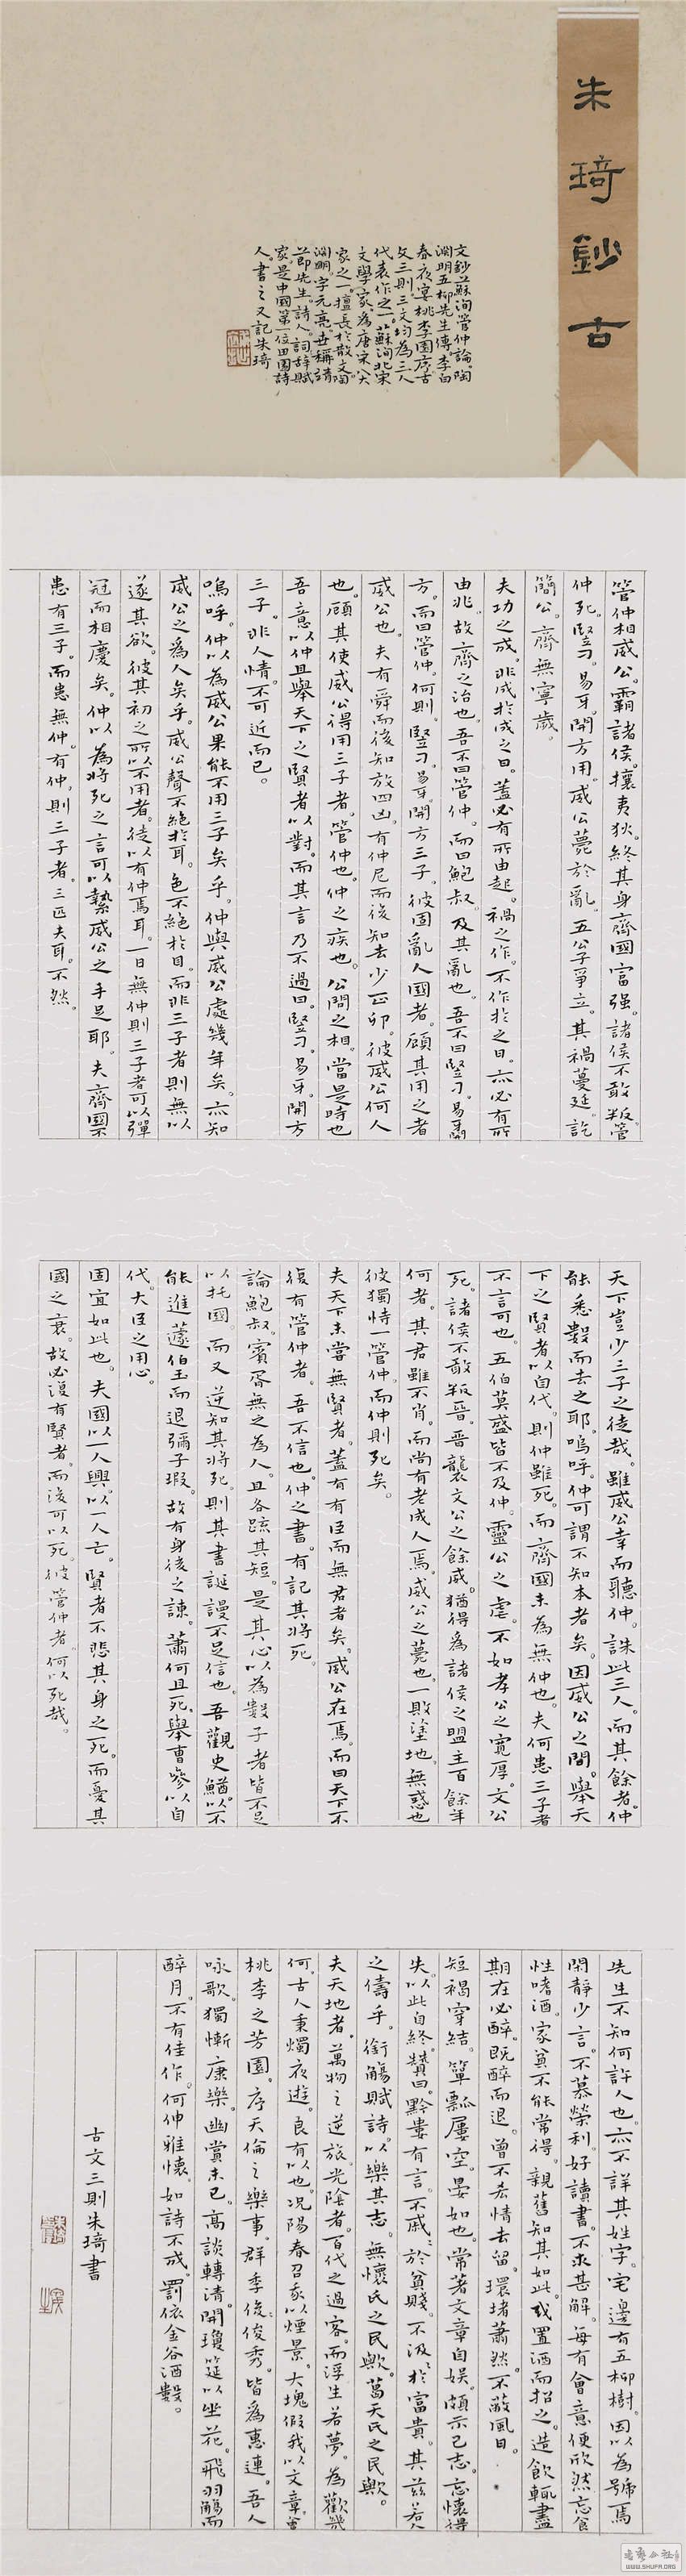 朱琦鈔古
文鈔蘇洵管仲論。陶
淵明五柳先生傳。李白
春夜宴桃李園序古
文三則三文均為三人
代表作之一。蘇洵北宋
文學家為唐宋八大
家之一。擅長於散文陶
淵明。字元亮世稱靖
節先生。詩人。詞辞賦
家是中國第一位田園詩
人。書之又記朱琦
管仲相威公。霸諸侯。攘夷狄。終其身齊國富强。諸侯不敢叛。管
仲死。豎刁。易牙。開方用。威公薨於亂。五公子爭立。其禍蔓延。訖
簡公。齊無寧歲。
夫功之成。非成於成之日。蓋必有所由起。禍之作。不作於之日。亦必有所
由兆。故齊之治也。吾不曰管仲。而曰鮑叔。及其亂也。吾不曰豎刁。易牙。開
方。而曰管仲。何則。豎刁。易牙。開方三子。彼固亂人國者。顧其用之者
威公也。夫有舜而後知放四凶。有仲尼而後知去少正卯。彼威公何人
也。顧其使威公得用三子者。管仲也。仲之疾也。公問之相。當是時也
吾意以仲且舉天下之賢者以對。而其言乃不過曰。豎刁。易牙。開方
三子。非人情。不可近而已。
嗚呼。仲以為威公果能不用三子矣乎。仲與威公處幾年矣。亦知
威公之為人矣乎。威公聲不絕於耳。色不絕於目。而非三子者則無以
遂其欲。彼其初之所以不用者。徒以有仲焉耳。一日無仲則三子者可以彈
冠而相慶矣。仲以為將死之言可以縶威公之手足耶。夫齊國不
患有三子。而患無仲。有仲。則三子者。三匹夫耳。不然。
天下豈少三子之徒哉。雖威公幸而聽仲。誅此三人。而其餘者。仲
能悉數而去之耶。嗚呼。仲可謂不知本者矣。因威公之問。舉天
下之賢者以自代。則仲雖死。而齊國未為無仲也。夫何患三子者
不言可也。五伯莫盛皆不及仲。靈公之虐。不如孝公之寬厚。文公
死。諸侯不敢叛晉。晉襲文公之餘威。猶得為諸侯之盟主百餘年
何者。其君雖不肖。而尚有老成人焉。威公之薨也。一敗塗地。無惑也
彼獨恃一管仲。而仲則死矣。
夫天下未嘗無賢者。蓋有有臣而無君者矣。威公在焉。而曰天下不
復有管仲者。吾不信也。仲之書。有記其將死。
論鮑叔。賓胥無之為人。且各疏其短。是其心以為數子者皆不足
以托國。而又逆知其將死。則其書誕謾不足信也。吾觀史鰌。以不
能進蘧伯玉而退彌子瑕。故有身後之諫。蕭何且死。舉曹參以自
代。大臣之用心。
固宜如此也。夫國以一人興。以一人亡。賢者不悲其身之死。而憂其
國之衰。故必復有賢者。而後可以死。彼管仲者。何以死哉。
先生不知何許人也。亦不詳其姓字。宅邊有五柳樹。因以為號焉
閑靜少言。不慕榮利。好讀書。不求甚解。每有會意便欣然忘食
性嗜酒。家貧不能常得。親舊知其如此。或置酒而招之。造飲輒盡
期在必醉。既醉而退。曾不吝情去留。環堵蕭然。不蔽風日。
短褐穿結。簞瓢屢空。晏如也。常著文章自娛。頗示己志。忘懷得
失。以此自終。贊曰。黔婁有言。不戚〻於貧賤。不汲〻於富貴。其茲若人
之儔乎。銜觴賦詩。以樂其志。無懷氏之民歟。葛天氏之民歟。
夫天地者。萬物之逆旅。光陰者。百代之過客。而浮生若夢。為歡幾
何。古人秉燭夜遊。良有以也。況陽春召我以煙景。大塊假我以文章。會
桃李之芳園。序天倫之樂事。群季俊〻俊秀。皆為惠連。吾人
咏歌。獨慚康樂。幽賞未已。高談轉清。開瓊筵以坐花。飛羽觴而
醉月。不有佳作。何伸雅懷。如詩不成。罰依金谷酒數。
古文三則朱琦書
WWW.SHUFA.ORG